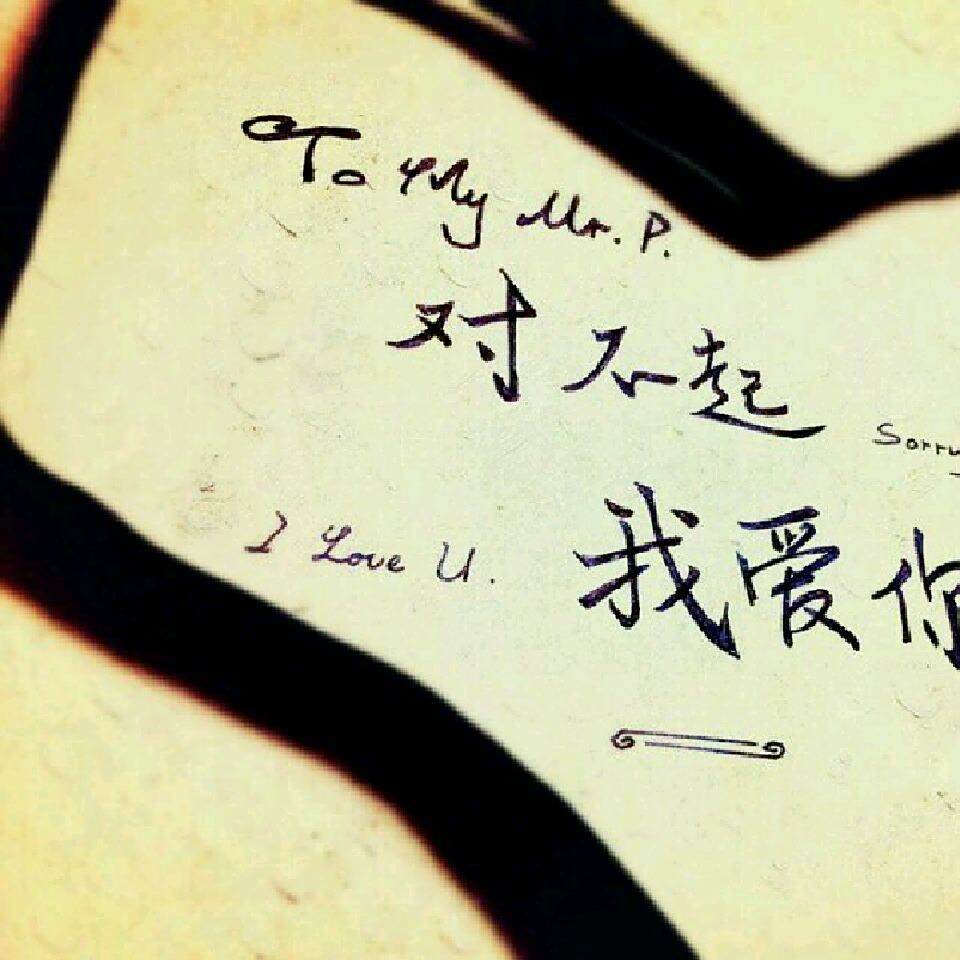 To My Mr. P.
对不起
Sorry
I Love U.
我爱你